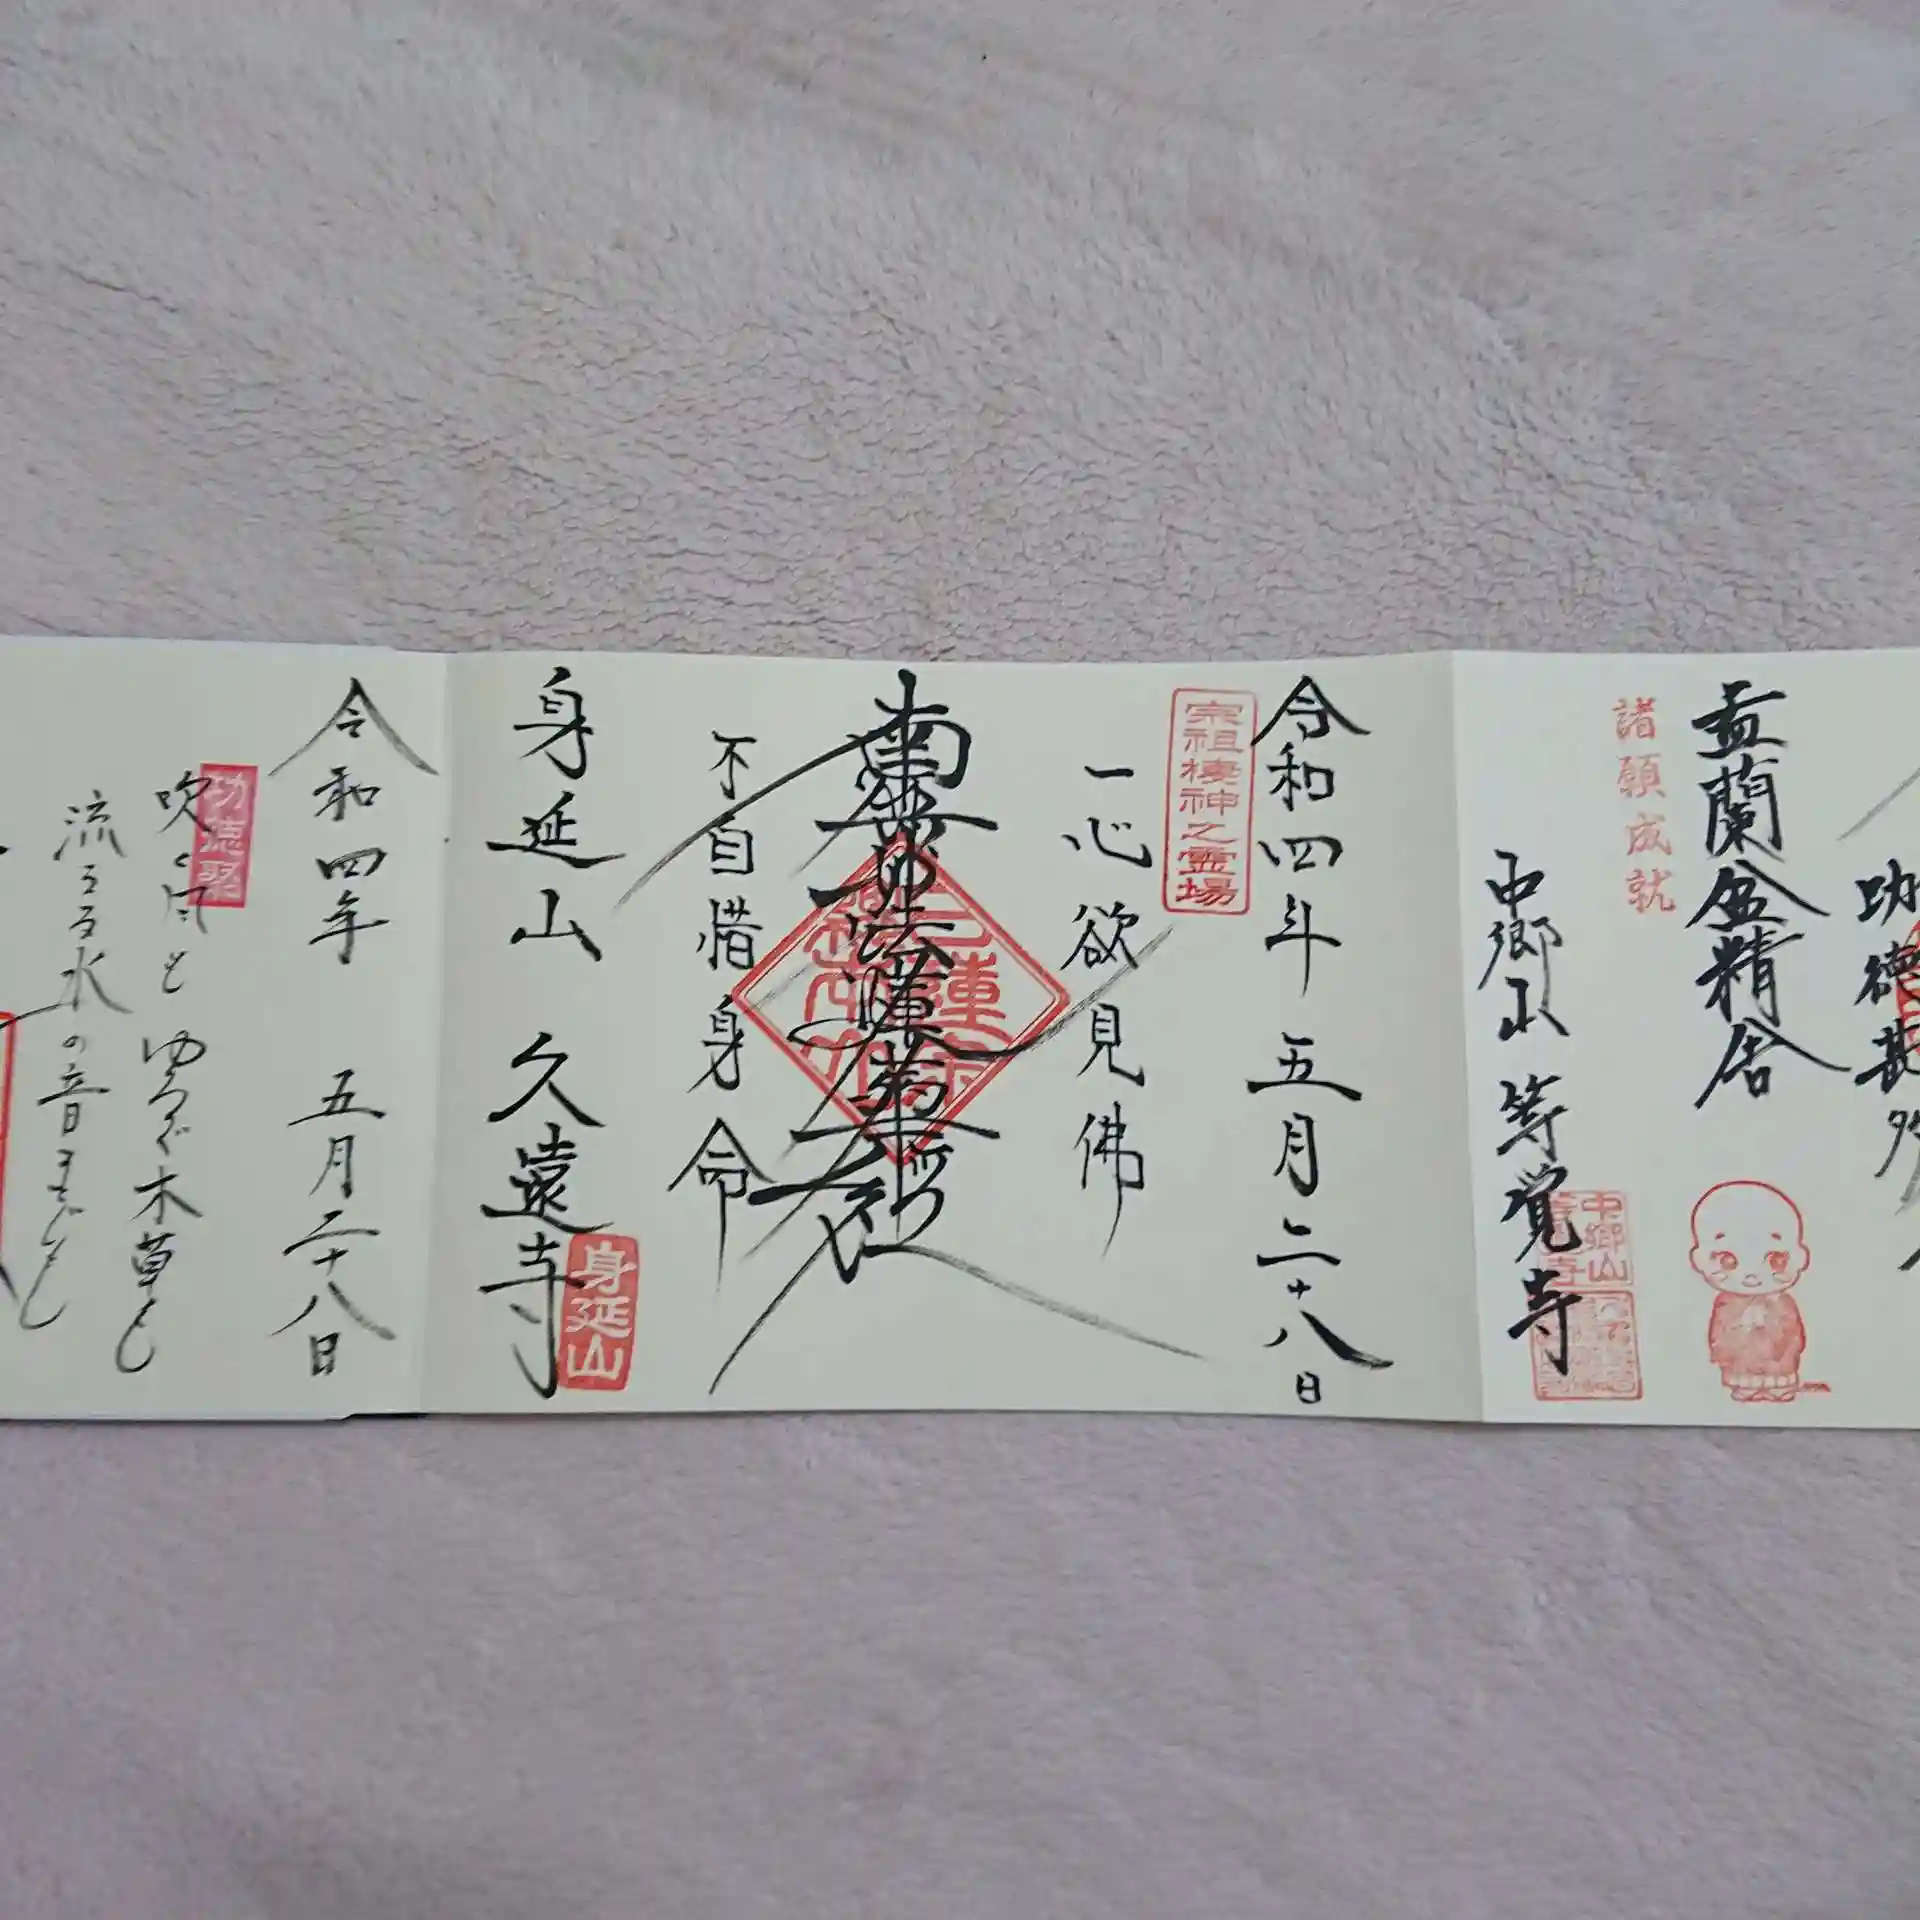 功徳甚多
盂蘭盆精舎
諸願成就
中郷山 等覚寺
中郷山
令和四年 五月二十八日
宗祖棲神之霊場
一心欲見佛
南無妙法蓮華経
不自惜身命
身延山 久遠寺
身延山
令和四年 五月二十八日
功徳聚
吹く風も ゆるぐ木草も
流るる水の音までも